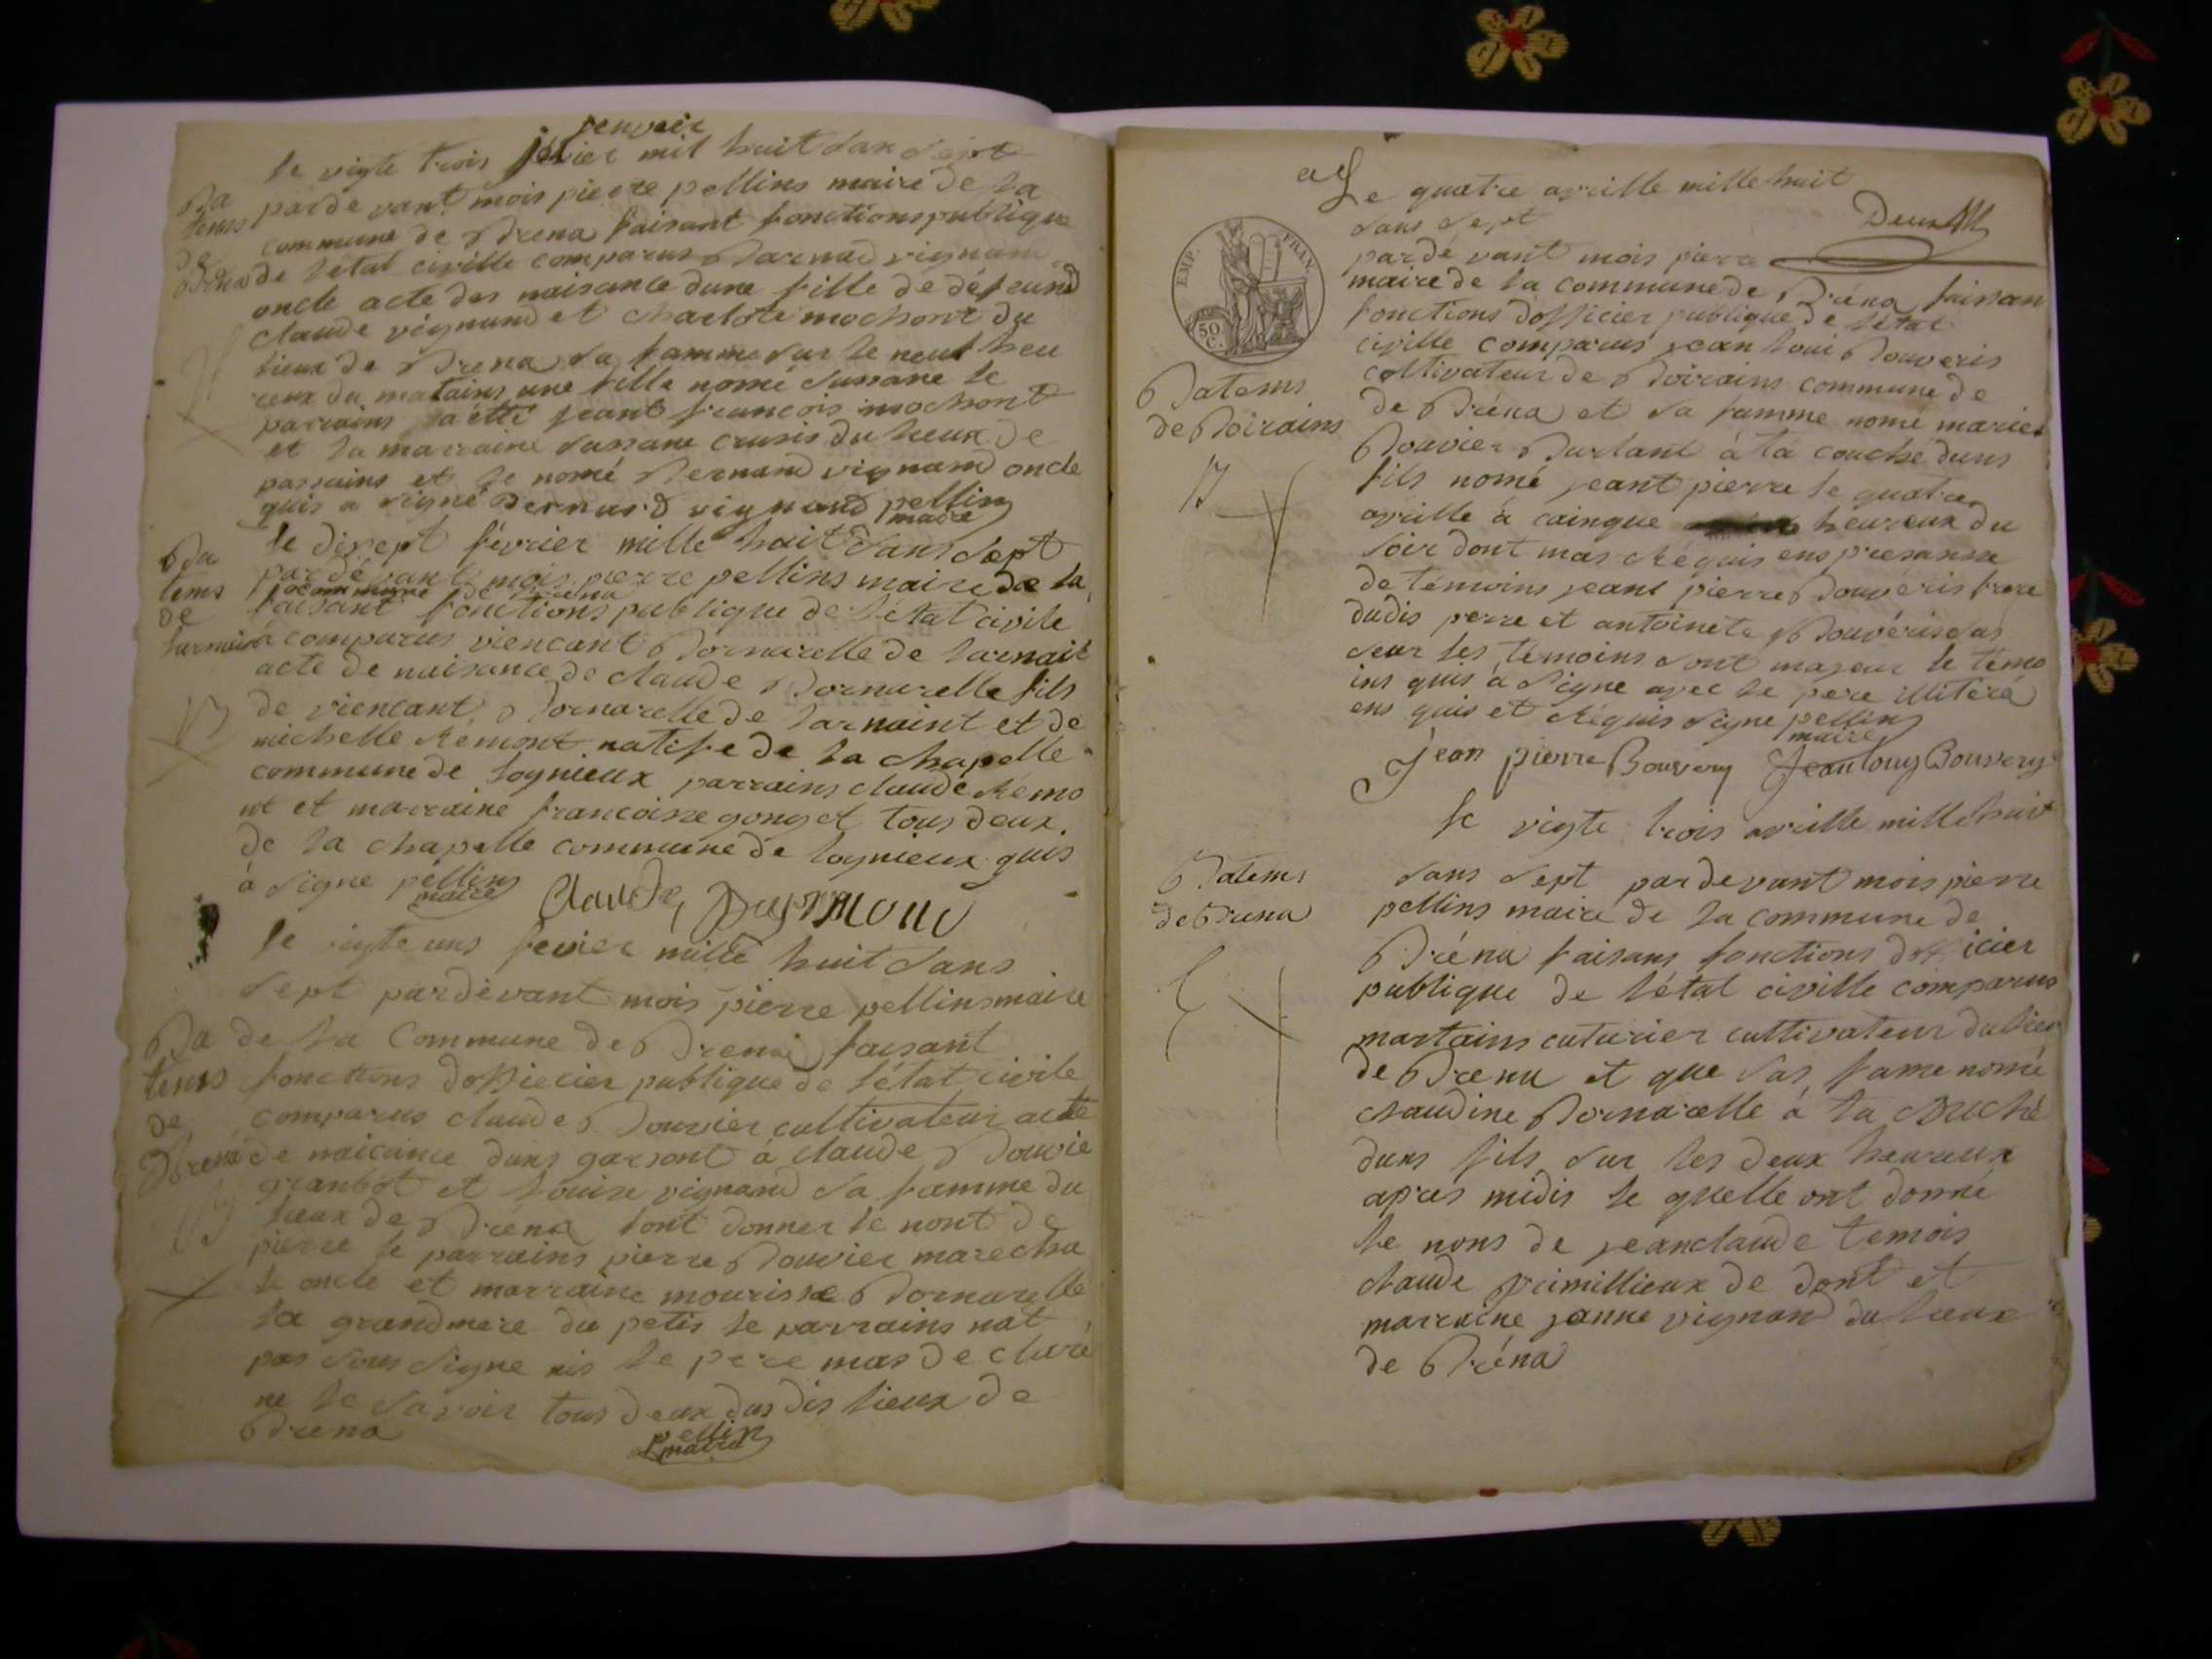 jenvier
le vigte trois jenvier mil huit san sept
pardevant mois pierre pellins maire de la
commune de Brena faisant fonctions publique
de l'état civille comparus Barnad vignand
oncle acte des naisance dune fille de défeund
claude vignund et charlote mochont du
lieux de Brena sa famme sur le neuf heu
reux du matains une fille nomé sussane le
parrains la étté jeant francois mochont
et la marraine sussane crusis du lieux de
parrains et le nomé Bernand vignand oncle
quis a signé Bernard vignand pellins
maire
Ba
tems
de
Brena
le disept février mille huit sans sept
pardevant mois pierre pellins maire de la
commune de Brena
faisant fonctions publique de l'état civile
comparus viencant Bornarelle de larnait
acte de naisance de claude Bornarelle fils
de viencant Bornarelle de larnaint et de
michelle Rémont natife de la chapelle
commune de lognieux parrains claude Rémo
nt et marraine francoisse gonget tous deux
de la chapelle commune de lognieux quis
à signe pellins
maire
Claude Reymond
Ba
tems
de
le vigte uns fevier mille huit sans
sept pardevant mois pierre pellins maire
de la Commune de Brena faisant
fonctions dofficier publique de l'état civile
comparus claude Bouvier cultivateur acte
de naicance duns garsont à claude Bouvie
granbot et louise vignand sa famme du
lieux de Bréna lont donner le nont de
pierre le parrains pierre Bouvier marecha
le oncle et marraine mourisse Bornarelle
la grandmere du petis le parrains nat
pas sous signe nis le pere mas de claré
ne le savoir tous deux dus dis lieux de
Brena
pellin
maire
Ba
tems
de
Brena
Le quatre avrille mille huit
sans sept
pardevant mois pierre
maire de la commune de Bréna faisan
fonctions dofficier publique de l'état
civille comparus jean loui Bouveris
coltivateur de Boirains commune de
de Bréna et sa famme nomé marie
Bouvier Burlant à la couché duns
fils nomé jeant pierre le quatre
avrille à cainque heureux du
soir dont mas réquis ens presansse
de témoins jeant pierre Bouveris frere
dudis perre et antoinete Bouvéris sas
seur les témoins sont majeur le témo
ins quis à signe avec le pere illitéré
ens quis et réquis signe pellins
maire
Jean pierre Bouvery Jean louy Bouvery
EMP. FRAN.
50 C.
Batems
de Boirains
le vigte trois avrille mille huit
sans sept pardevant mois pierre
pellins maire de la commune de
Bréna faisans fonctions dofficier
publique de l'état civille comparus
martains cuturier cultivateur du lieu
de Brena et que sas fame nomé
claudine Bornarelle à la couché
duns fils sur les deux heureux
apres midis le quelle ont donné
le nons de jean claude temois
claude vrimillieux de dont et
marraine janne vignand du lieux
de Bréna
Batems
de Brena